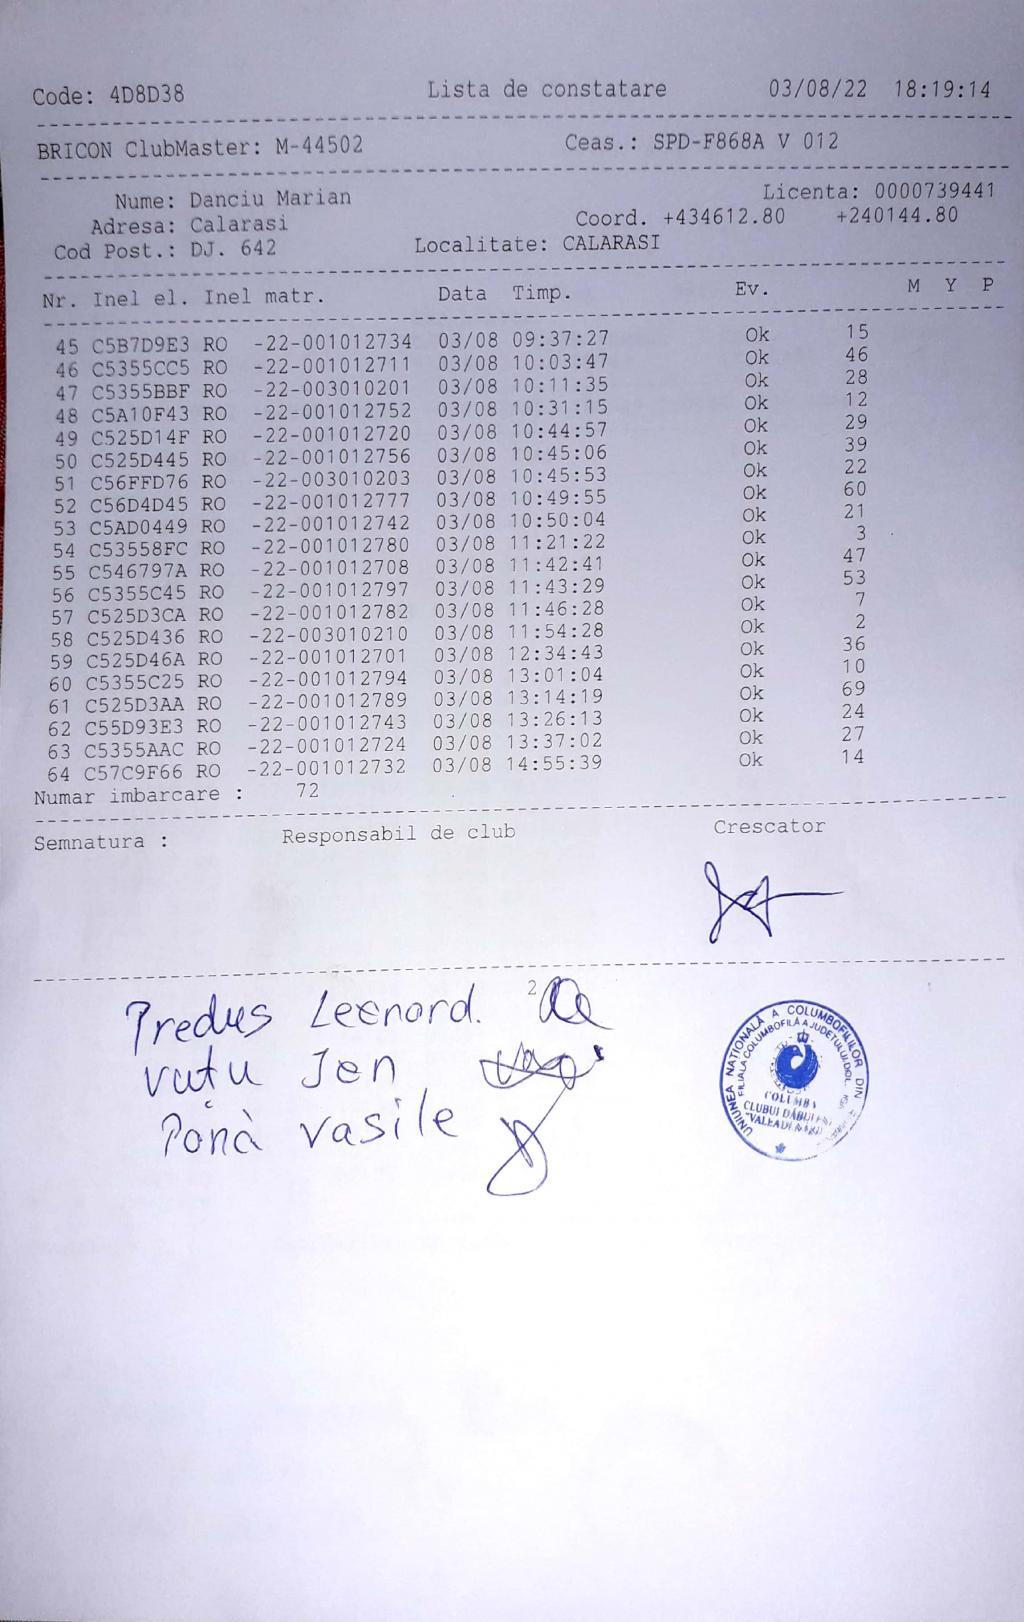 Code: 4D8D38 Lista de constatare 03/08/22 18:19:14
BRICON ClubMaster: M-44502 Ceas.: SPD-F868A V 012
Nume: Danciu Marian Licenta: 0000739441
Adresa: Calarasi Coord. +434612.80 +240144.80
Cod Post.: DJ. 642 Localitate: CALARASI
Nr. Inel el. Inel matr. Data Timp. Ev. M Y P
45 C5B7D9E3 RO -22-001012734 03/08 09:37:27 Ok 15
46 C5355CC5 RO -22-001012711 03/08 10:03:47 Ok 46
47 C5355BBF RO -22-003010201 03/08 10:11:35 Ok 28
48 C5A10F43 RO -22-001012752 03/08 10:31:15 Ok 12
49 C525D14F RO -22-001012720 03/08 10:44:57 Ok 29
50 C525D445 RO -22-001012756 03/08 10:45:06 Ok 39
51 C56FFD76 RO -22-003010203 03/08 10:45:53 Ok 22
52 C56D4D45 RO -22-001012777 03/08 10:49:55 Ok 60
53 C5AD0449 RO -22-001012742 03/08 10:50:04 Ok 21
54 C53558FC RO -22-001012780 03/08 11:21:22 Ok 3
55 C546797A RO -22-001012708 03/08 11:42:41 Ok 47
56 C5355C45 RO -22-001012797 03/08 11:43:29 Ok 53
57 C525D3CA RO -22-001012782 03/08 11:46:28 Ok 7
58 C525D436 RO -22-003010210 03/08 11:54:28 Ok 2
59 C525D46A RO -22-001012701 03/08 12:34:43 Ok 36
60 C5355C25 RO -22-001012794 03/08 13:01:04 Ok 10
61 C525D3AA RO -22-001012789 03/08 13:14:19 Ok 69
62 C55D93E3 RO -22-001012743 03/08 13:26:13 Ok 24
63 C5355AAC RO -22-001012724 03/08 13:37:02 Ok 27
64 C57C9F66 RO -22-001012732 03/08 14:55:39 Ok 14
Numar imbarcare : 72
Semnatura : Responsabil de club Crescator
2
Predus Leonard.
Vutu Jen
Ponà Vasile
UNIUNEA NAȚIONALĂ A COLUMBOFILILOR DIN
FILIALA COLUMBOFILĂ A JUDEȚULUI DOLJ
COLUMBA
CLUBUL DĂBULENI